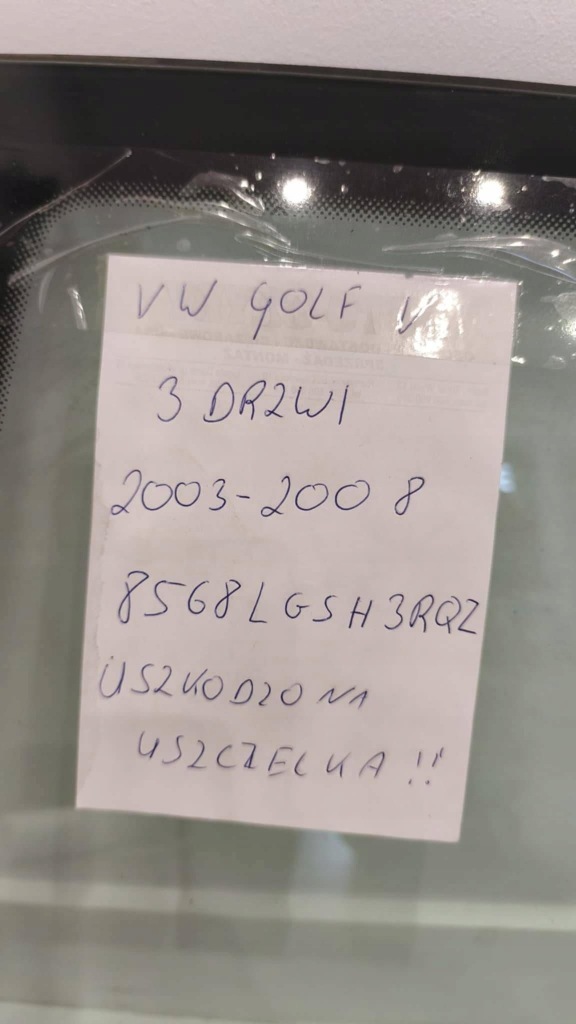 VW GOLF V
3 DRZWI
2003-2008
8568LGSH3RQZ
USZKODZONA
USZCZELKA !!